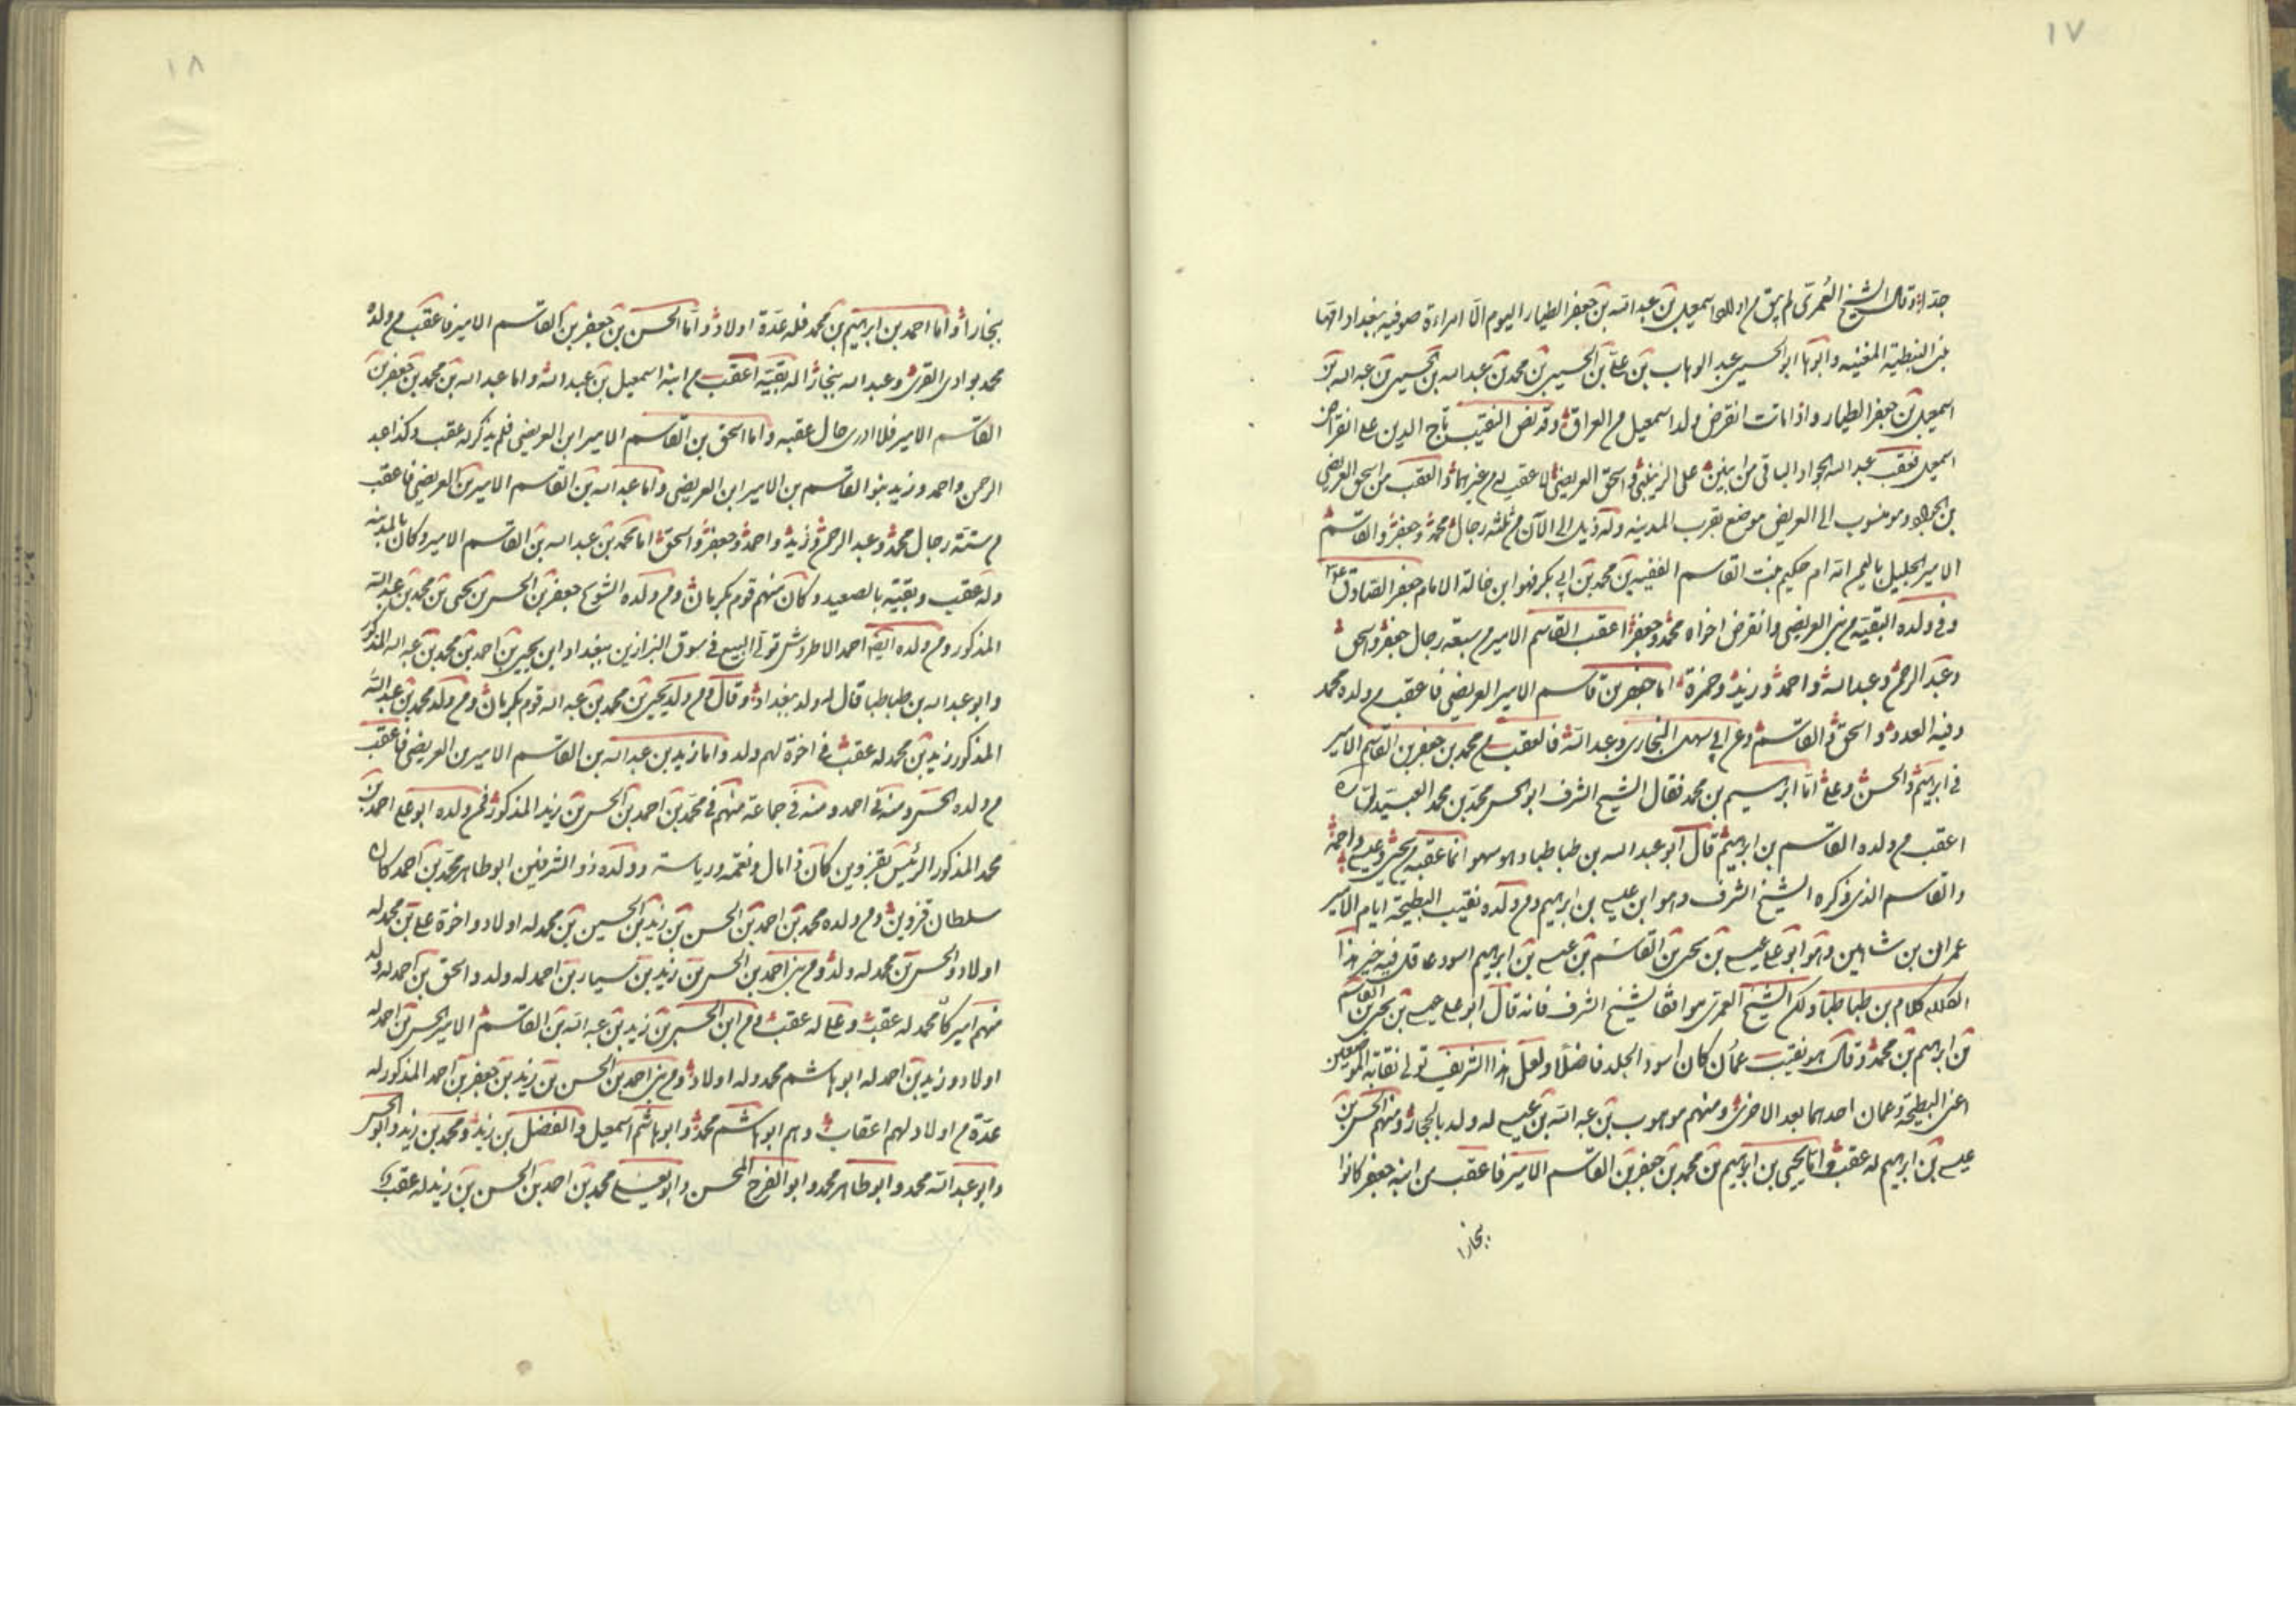 ١٧
جدا وقال الشيخ العمرى لم يبق من اولاد اسمعيل بن عبد الله بن جعفر الطيار اليوم الا امراءة صوفيه ببغداد امها
بنت النبطية المغنيه وابوها ابو الحسين عبد الوهاب بن على بن الحسين بن محمد بن عبد الله بن الحسين بن عبد الله بن
اسمعيل بن جعفر الطيار واذا ماتت انقرض ولد اسمعيل من العراق وقد نص النقيب تاج الدين على انقراض
اسمعيل فعقب عبد الله الجواد الباقى من ابنين على الزينبى واسحق العريضى لا عقب له من غيرهما والعقب من اسحق العريضى
بن الجواد وهو منسوب الى العريض موضع بقرب المدينه وله ذيل الى الآن من ثلثه رجال محمد وجعفر والقاسم
الامير الجليل باليمن امه ام حكيم بنت القاسم الفقيه بن محمد بن ابى بكر فهو ابن خالة الامام جعفر الصادق
وفى ولده البقيه من بنى العريضى وانقرض اخواه محمد وجعفر اعقب القاسم الامير من سبعه رجال جعفر واسحق
وعبد الرحمن وعبد الله واحمد وزيد وحمزة اما جعفر بن قاسم الامير العريضى فاعقب من ولده محمد
وفيه العدد واسحق والقاسم وعن ابى سهل البخارى وعبد الله فالعقب من محمد بن جعفر بن القاسم الامير
فى ابراهيم والحسن وعلى اما ابراهيم بن محمد فقال الشيخ الشرف ابو الحسن محمد بن محمد العبيدلى
اعقب من ولده القاسم بن ابراهيم قال ابو عبد الله بن طباطبا وهو سهو انما عقبه من يحيى وعيسى واحمد
والقاسم الذى ذكره الشيخ الشرف وهو ابن عيسى بن ابراهيم ومن ولده نقيب البطيحة ايام الامير
عمران بن شاهين وهو ابو على عيسى بن يحيى بن القاسم بن عيسى بن ابراهيم اسود عاقل فيه خير هذا
الكلام كلام بن طباطبا ولكن الشيخ العمرى موافق الشيخ الشرف فانه قال ابو على عيسى بن يحيى بن القاسم
بن ابراهيم بن محمد وقال هو نقيب عمان كان اسود الجلد فاضلا ولعل هذا الشريف تولى نقابة الموضعين
اعنى البطيحة وعمان احدهما بعد الاخرى ومنهم موهوب بن عبد الله بن عيسى له ولد بالحجاز ومنهم الحسن بن
عيسى بن ابراهيم له عقب واما يحيى بن ابراهيم بن محمد بن جعفر بن القاسم الامير فاعقب من ابنه جعفر كانوا
بنجارا
١٨
بنجارا واما احمد بن ابراهيم بن محمد فله عدة اولاد واما الحسن بن جعفر بن القاسم الامير فاعقب من ولده
محمد بوادى القرى وعبد الله بنجار اله بقيته اعقب من ابنه اسمعيل بن عبد الله واما عبد الله بن محمد بن جعفر بن
القاسم الامير فلا ادرى حال عقبه واما اسحق بن القاسم الامير ابن العريضى فلم يذكر له عقب وكذا عبد
الرحمن واحمد وزيد بنو القاسم بن الامير ابن العريضى واما عبد الله بن القاسم الامير بن العريضى فاعقب
من ستة رجال محمد وعبد الرحمن وزيد واحمد وجعفر واسحق اما محمد بن عبد الله بن القاسم الامير وكان بالمدينه
وله عقب وبقيته بالصعيد وكان منهم قوم بكرمان ومن ولده الشويخ جعفر بن الحسن بن يحيى بن محمد بن عبد الله
المذكور ومن ولده ايضا احمد الاطروش تولى البيع فى سوق البزازين ببغداد ابن يحيى بن احمد بن محمد بن عبد الله المذكور
وابو عبد الله بن طباطبا قال له ولد ببغداد وقال ومن ولد يحيى بن محمد بن عبد الله قوم بكرمان ومن ولد محمد بن عبد الله
المذكور زيد بن محمد له عقب فى اخوة لهم ولد واما زيد بن عبد الله بن القاسم الامير بن العريضى فاعقب
من ولده الحسن ومنه فى احمد ومنه فى جماعة منهم فى محمد بن احمد بن الحسن بن زيد المذكور فمن ولده ابو على احمد بن
محمد المذكور الرئيس بقزوين كان ذا مال ونعمه ورياسة وولده ذو الشرفين ابو طاهر محمد بن احمد كان
سلطان قزوين ومن ولده محمد بن احمد بن الحسن بن زيد بن الحسين بن محمد له اولاد واخوة على بن محمد له
اولاد والحسن بن محمد له ولد ومن بنى احمد بن الحسن بن زيد بن سيار بن احمد له ولد واسحق بن احمد له ولد
منهم اميركا محمد له عقب وعلى له عقب ومن ابن الحسن بن زيد بن عبد الله بن القاسم الامير الحسن بن احمد له
اولاد وزيد بن احمد له ابو هاشم محمد وله اولاد ومن بنى احمد بن الحسن بن زيد بن جعفر بن احمد المذكور له
عدة من اولاد لهم اعقاب وهم ابو هاشم محمد وابو هاشم اسمعيل والفضل بن زيد ومحمد بن زيد وابو الحسن
وابو عبد الله محمد وابو طاهر محمد وابو الفرج المحسن وابو يعلى محمد بن احمد بن الحسن بن زيد له عقب